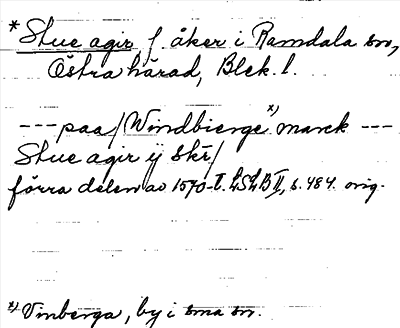 * Stue agir f. åker i Ramdala sn,
Östra härad, Blek. l.
--- paa/Windbierge x) marck ---
Stue agir ij Skr̄/
förra delen av 1570-t. LSLB II, s. 484. orig.
x) Vinberga, by i sma sn.